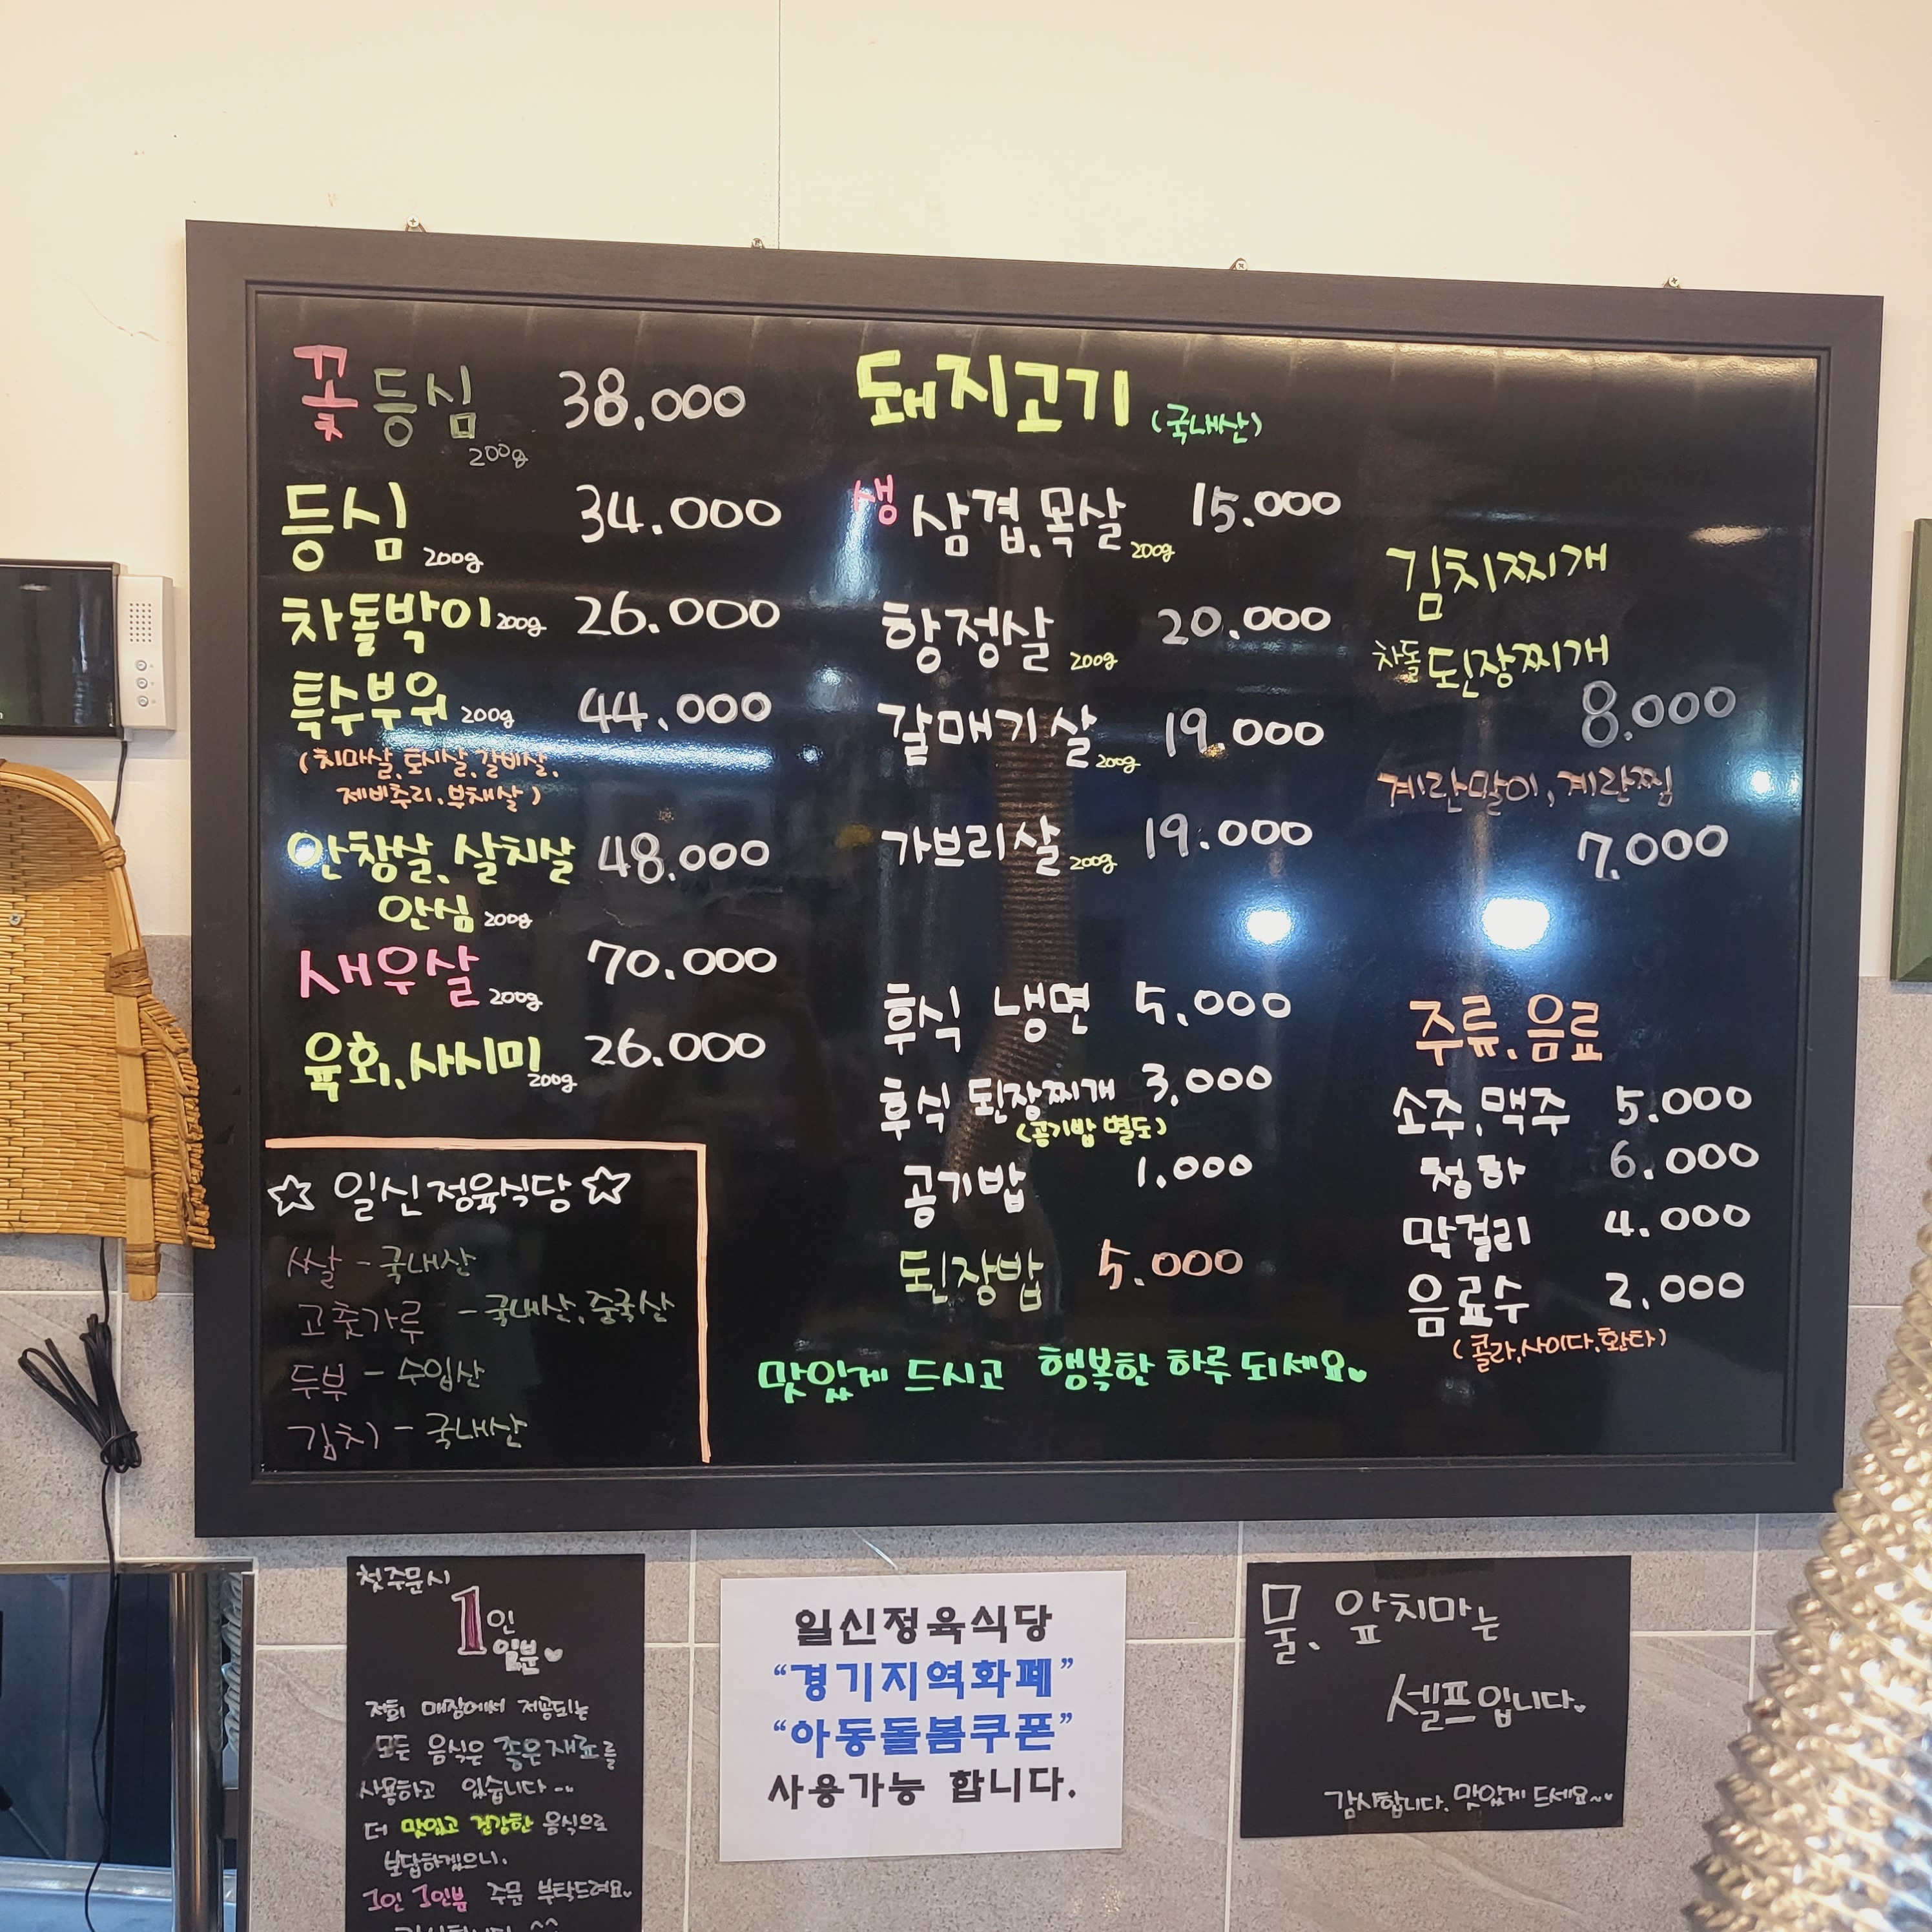 꽃등심 200g 38,000
등심 200g 34.000
차돌박이 200g 26.000
특수부위 200g 44.000
(치마살, 토시살, 갈비살,
제비추리, 부채살)
안창살, 살치살 48.000
안심 200g
새우살 200g 70.000
육회, 사시미 200g 26.000
☆ 일신정육식당 ☆
쌀 - 국내산
고춧가루 - 국내산, 중국산
두부 - 수입산
김치 - 국내산
돼지고기 (국내산)
생 삼겹, 목살 200g 15.000
항정살 200g 20.000
갈매기살 200g 19.000
가브리살 200g 19.000
후식 냉면 5.000
후식 된장찌개 3,000
(공기밥 별도)
공기밥 1.000
된장밥 5.000
맛있게 드시고 행복한 하루 되세요♥
김치찌개
차돌 된장찌개
8.000
계란말이, 계란찜
7.000
주류, 음료
소주, 맥주 5.000
청하 6.000
막걸리 4.000
음료수 2.000
(콜라, 사이다, 환타)
첫주문시
1인
일분♥
저희 매장에서 제공되는
모든 음식은 좋은재료를
사용하고 있습니다...
더 맛있고 건강한 음식으로
보답하겠으니.
1인 1인분 주문 부탁드려요♥
일신정육식당
“경기지역화폐”
“아동돌봄쿠폰”
사용가능 합니다.
물, 앞치마는
셀프입니다♥
감사합니다. 맛있게 드세요~♥